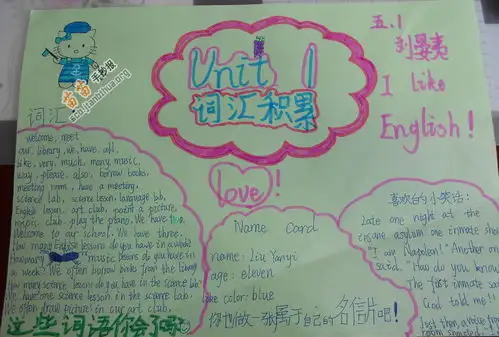 Unit 1
词汇积累
五.1
I like
English!
词汇:
welcome, meet
our, library, we, have, all,
like, very, much, many, music,
way, please, also, borrow books,
meeting room, have a meeting,
science lab, science lesson, language lab,
English lesson, art club, paint a picture,
music club, play the piano. We have two.
Welcome to our school. We have three.
How many English lessons do you have in a week?
How many music lessons do you have in
a week? We often borrow books from the library.
many science lesson do you have in the science lab
We have some science lesson in the science lab.
We often draw pictures in our art club.
这些词语你会了吗?
love!
Name Card
name: Liu Yanyi
age: eleven
like color: blue
你也做一张属于自己的名信片吧!
喜欢的小笑话:
Late one night at the
insane asylum one inmate sho
"I am Napoleon!" Another on
said, "How do you know
The first inmate sa
God told me!
Just then, a voice from
room shouted,